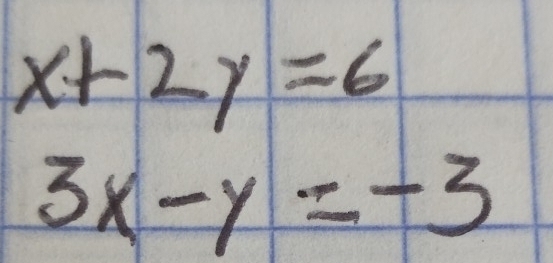 x+2y=6
3x-y=-3